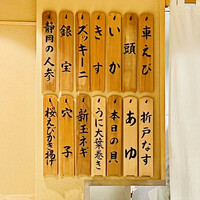 車えび
頭
いか
きす
ズッキーニ
銀宝
静岡の人参
折戸なす
あゆ
本日の貝
うに大葉巻き
新玉ネギ
穴子
桜えびかき揚げ